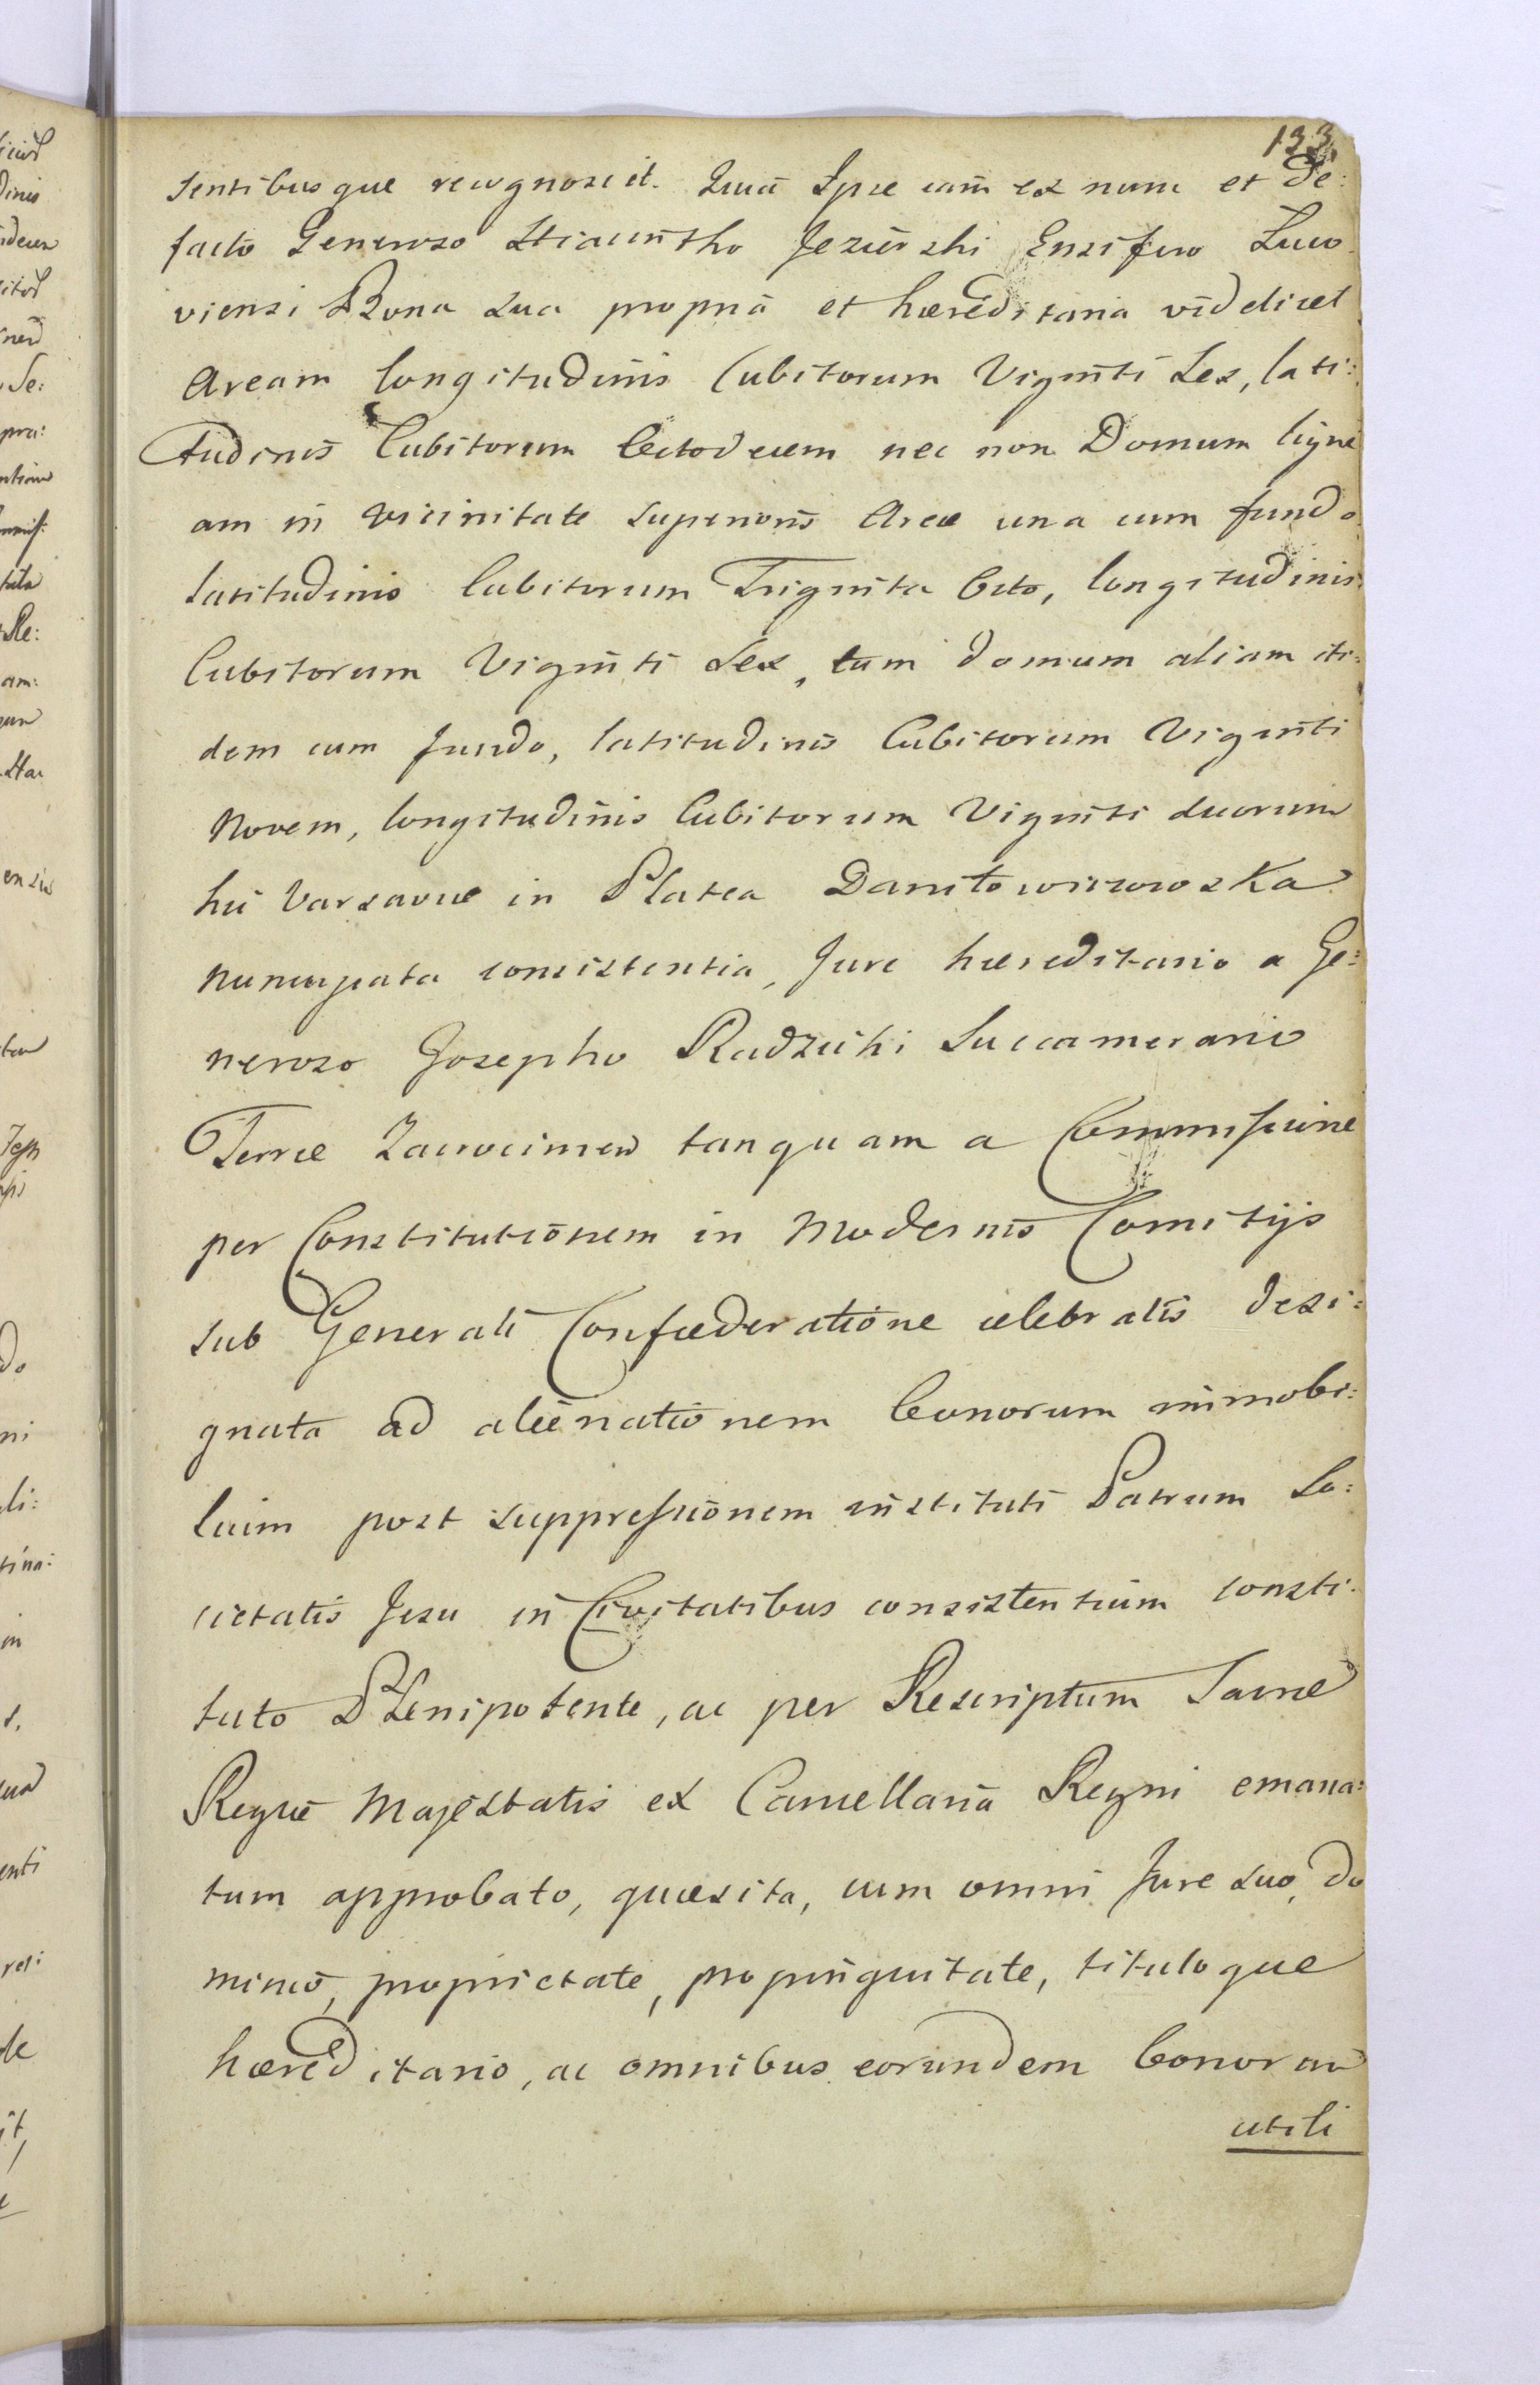 133
sentibusque recognoscit. Quia Ipse iam ex nunc et de:
facto Generoso Hiacintho Jezierski Ensifero Luco
viensi Bona sua propria et hæreditaria videlicet
Aream longitudinis Cubitorum Viginti Sex, lati:
tudinis Cubitorum Octodecem nec non Domum ligne
am in vicinitate superioris Areæ una cum fundo
latitudinis Cubitorum Triginta Octo, longitudinis
Cubitorum Viginti Sex, tum domum aliam iti:
dem cum fundo, latitudinis Cubitorum Viginti
Novem, longitudinis Cubitorum Viginti duorum
hic Varsaviæ in Platea Daniłowiczowska
nuncupata consistentia, Jure hæreditario a Ge:
neroso Josepho Radzicki Succamerario
Terræ Zacrocimen tanquam a Commissione
per Constitutionem in Modernis Comitijs
sub Generali Confœderatione celebratis desi:
gnata ad alienationem bonorum immobi:
lium post suppressionem instituti Patrum So:
cietatis Jesu in Civitatibus consistentium consti:
tuto Plenipotente, ac per Rescriptum Sacræ
Regiæ Majestatis ex Cancellaria Regni emana:
tum approbato, quæsita, cum omni Jure suo, do
minio, proprietate, propinquitate, tituloque
hæreditario, ac omnibus eorundem bonorum
utili